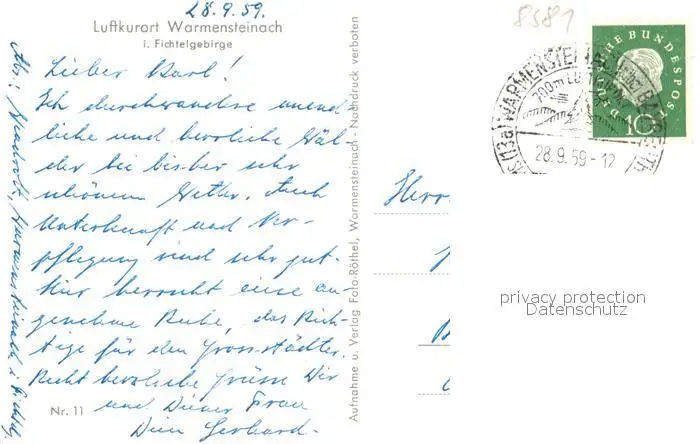 28.9.59.
8581
Luftkurort Warmensteinach
i. Fichtelgebirge
Lieber Karl!
Ich durchwandere unend-
liche und herrliche Wäl-
der bei bisher sehr
schönem Wetter. Auch
Unterkunft und Ver-
pflegung sind sehr gut.
Hier herrscht eine an-
genehme Ruhe, das Rich-
tige für den Grossstädter.
Recht herzliche Grüsse Dir
und Deiner Frau
Dein Gerhard.
Nr. 11
Abs: Warmensteinach i. Fichtelg.
Aufnahme u. Verlag Foto-Röthel, Warmensteinach - Nachdruck verboten
Herrn
DEUTSCHE BUNDESPOST
10
(13a) WARMENSTEINACH BAYREUTH
700m
28.9.59-12
privacy protection
Datenschutz